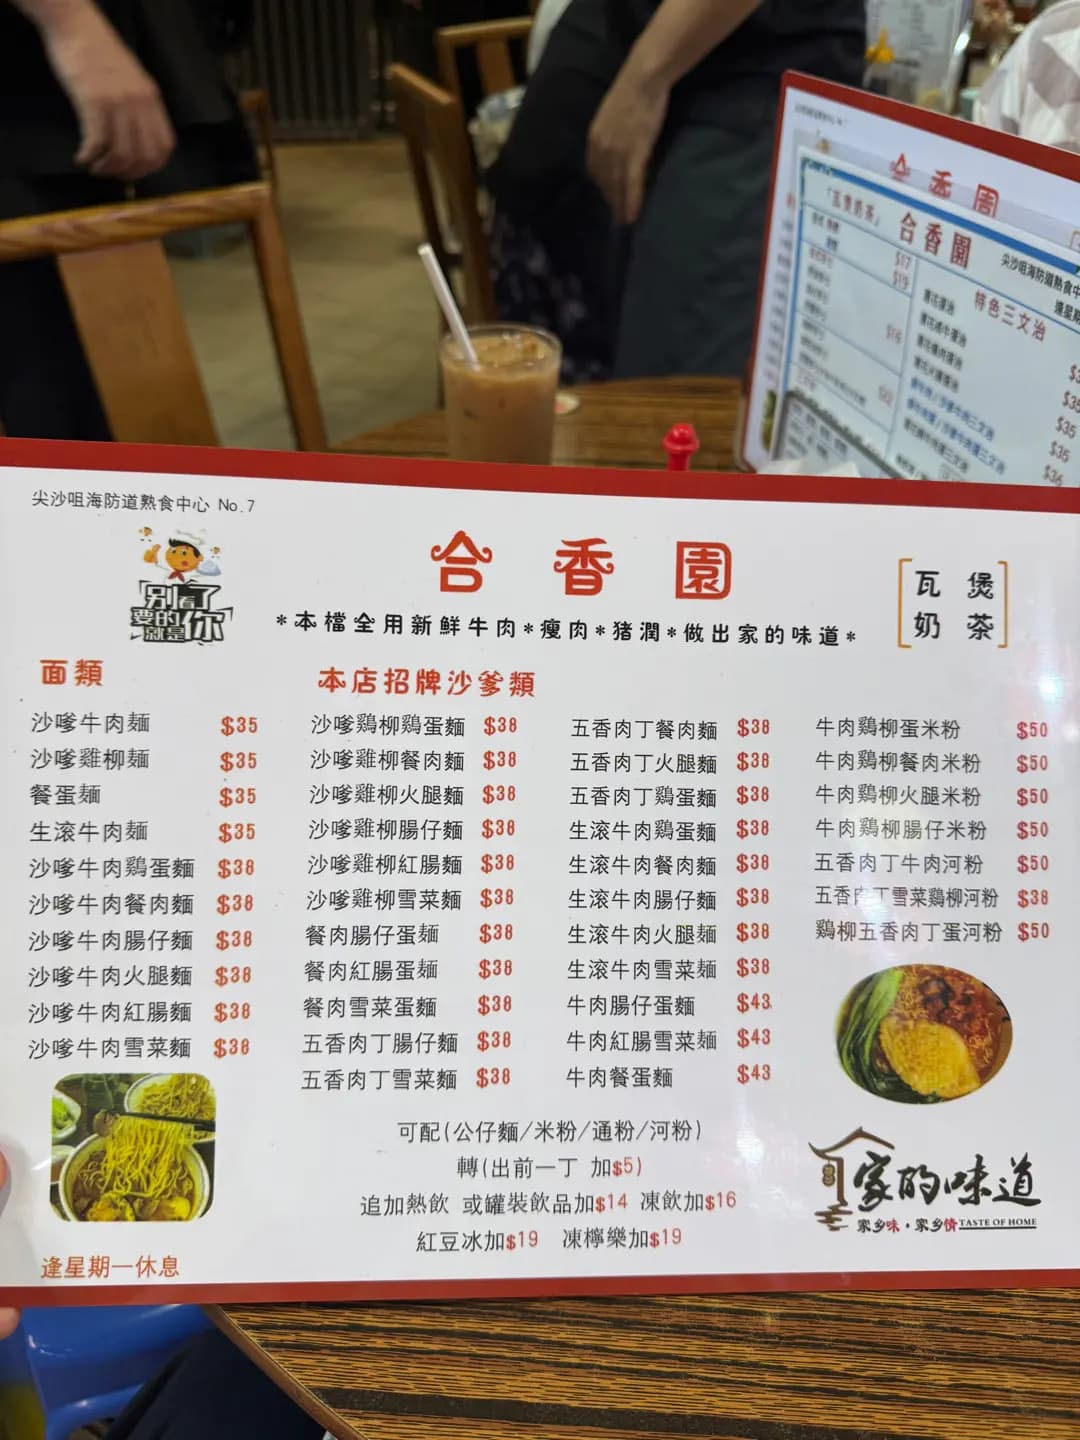 合香園
「瓦煲奶茶」
合香園
尖沙咀海防道熟食中
逢星期
$17
$19
$16
特色三文治
$35
$35
$35
$36
尖沙咀海防道熟食中心 No.7
別看了
要的就是你
合香園
*本檔全用新鮮牛肉*瘦肉*豬潤*做出家的味道*
瓦煲
奶茶
面類
沙嗲牛肉麺 $35
沙嗲雞柳麵 $35
餐蛋麵 $35
生滚牛肉麺 $35
沙嗲牛肉鷄蛋麵 $38
沙嗲牛肉餐肉麵 $38
沙嗲牛肉腸仔麵 $38
沙嗲牛肉火腿麵 $38
沙嗲牛肉紅腸麵 $38
沙嗲牛肉雪菜麵 $38
本店招牌沙爹類
沙嗲鷄柳鷄蛋麵 $38
沙嗲雞柳餐肉麵 $38
沙嗲雞柳火腿麵 $38
沙嗲雞柳腸仔麵 $38
沙嗲雞柳紅腸麵 $38
沙嗲雞柳雪菜麵 $38
餐肉腸仔蛋麵 $38
餐肉紅腸蛋麵 $38
餐肉雪菜蛋麵 $38
五香肉丁腸仔麵 $38
五香肉丁雪菜麵 $38
五香肉丁餐肉麵 $38
五香肉丁火腿麵 $38
五香肉丁鷄蛋麵 $38
生滚牛肉鷄蛋麵 $38
生滚牛肉餐肉麵 $38
生滚牛肉腸仔麵 $38
生滚牛肉火腿麵 $38
生滚牛肉雪菜麵 $38
牛肉腸仔蛋麵 $43
牛肉紅腸雪菜麵 $43
牛肉餐蛋麵 $43
牛肉鷄柳蛋米粉 $50
牛肉鷄柳餐肉米粉 $50
牛肉鷄柳火腿米粉 $50
牛肉鷄柳腸仔米粉 $50
五香肉丁牛肉河粉 $50
五香肉丁雪菜鷄柳河粉 $38
鷄柳五香肉丁蛋河粉 $50
可配(公仔麵/米粉/通粉/河粉)
轉(出前一丁 加$5)
追加熱飲 或罐裝飲品加$14 凍飲加$16
紅豆冰加$19 凍檸樂加$19
逢星期一休息
家的味道
家乡味·家乡情 TASTE OF HOME